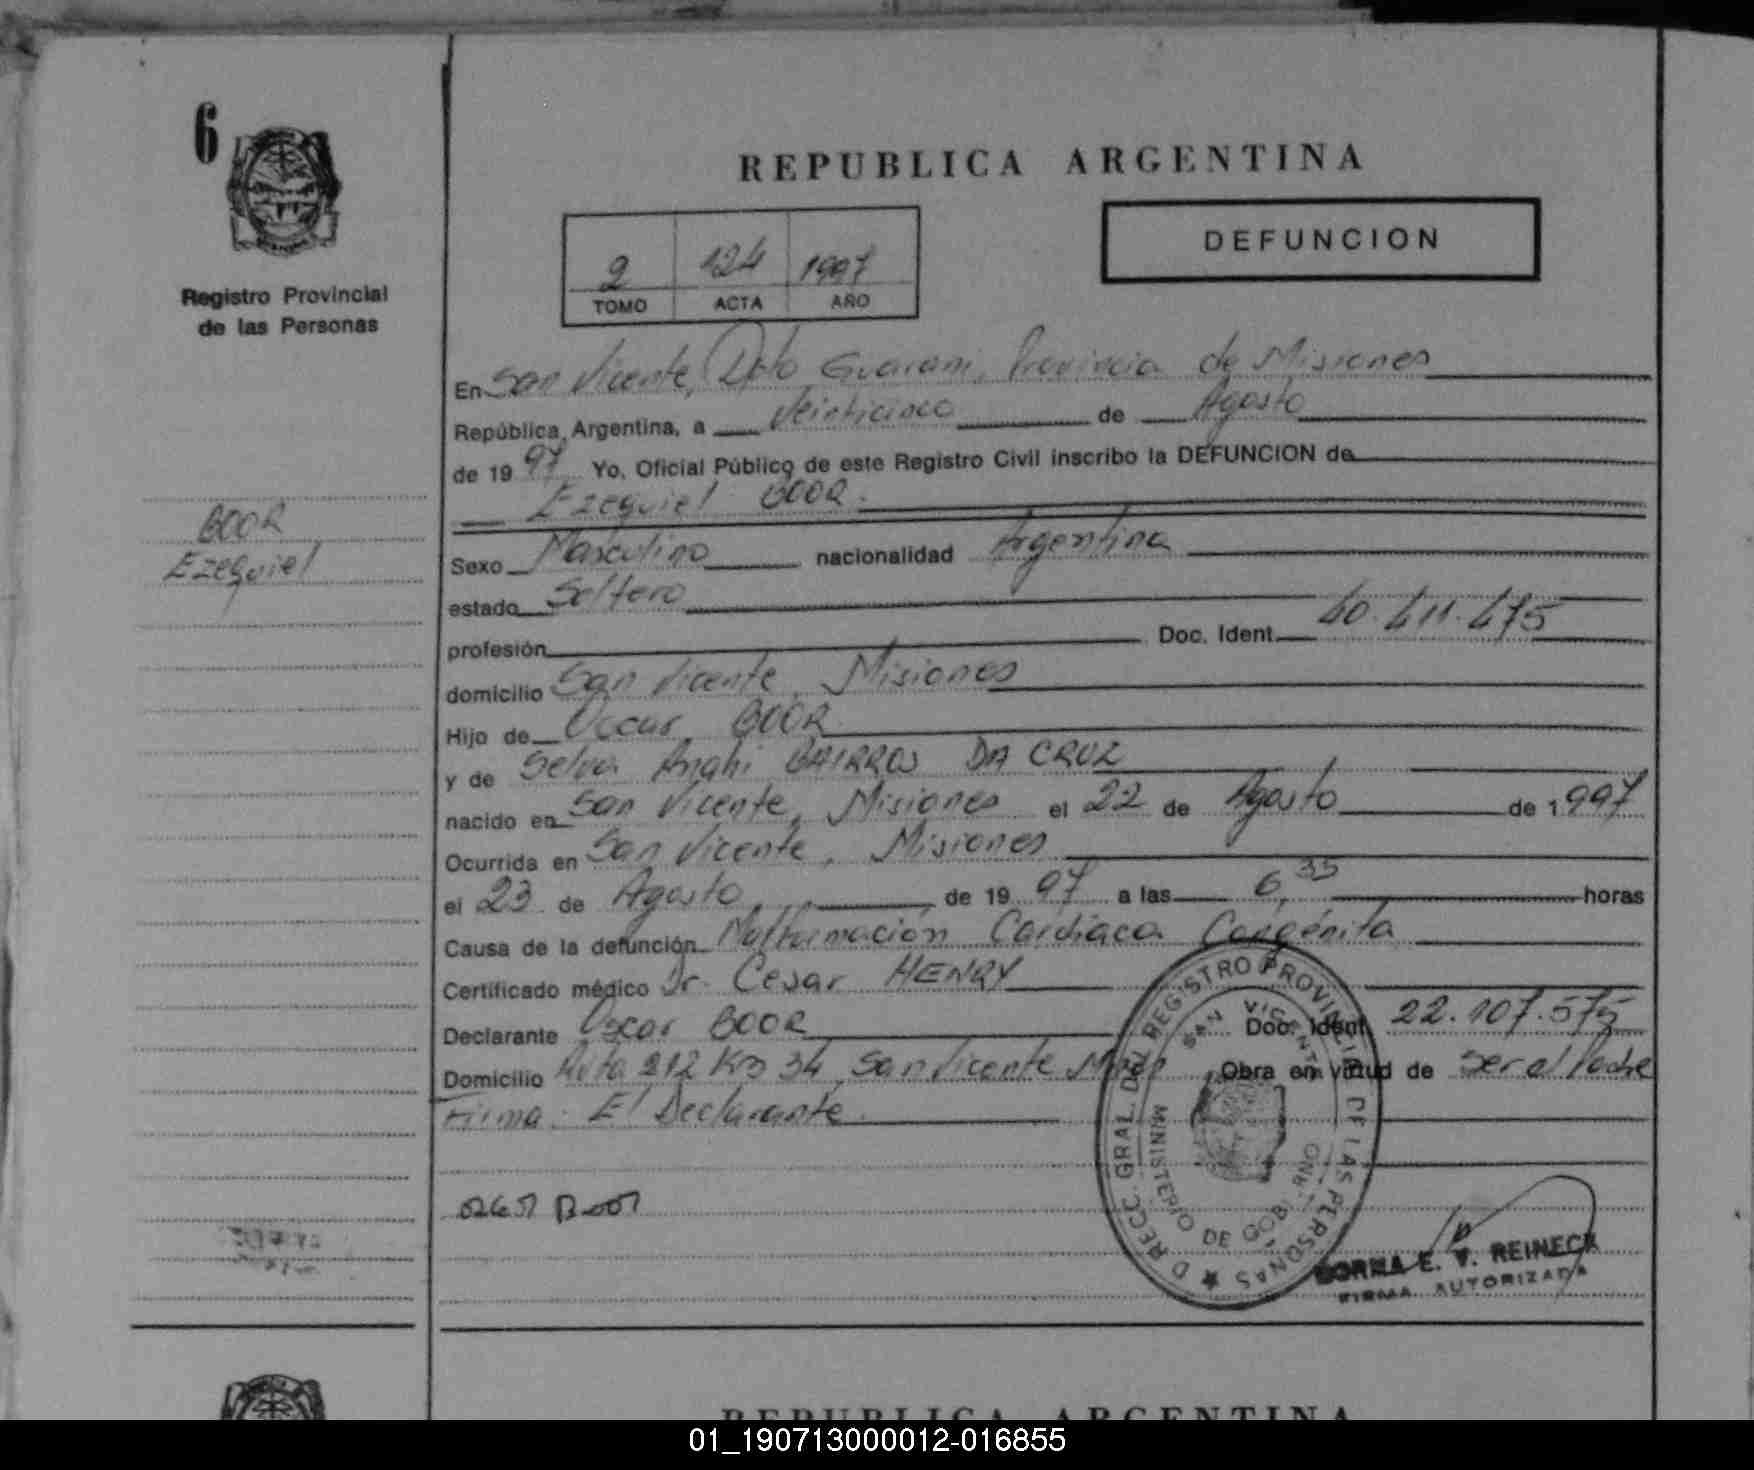 6
REPUBLICA ARGENTINA
DEFUNCION
2 124 1997
TOMO ACTA AÑO
Registro Provincial
de las Personas
En San Vicente, Dpto Guarani, Provincia de Misiones
República Argentina, a Veinticinco de Agosto
de 19 97 Yo, Oficial Público de este Registro Civil inscribo la DEFUNCION de
Ezequiel BOOR.
BOOR
Ezequiel
Sexo Masculino nacionalidad Argentina
estado Soltero
profesión Doc. Ident. 40.411.475
domicilio San Vicente, Misiones
Hijo de Oscar BOOR
y de Selva Anahi BAIRROS DA CRUZ
nacido en San Vicente, Misiones el 22 de Agosto de 1997
Ocurrida en San Vicente, Misiones
el 23 de Agosto de 19 97 a las 6,35 horas
Causa de la defunción Malformación Cardiaca Congénita
Certificado médico Dr. Cesar HENRY
Declarante Oscar BOOR Doc. Ident. 22.107.575
Domicilio Ruta 212 Km 34, San Vicente Mnes Obra en virtud de Ser el Padre
Firma: El Declarante.
DIRECC. GRAL. DEL REGISTRO PROVINCIAL DE LAS PERSONAS
SAN VICENTE
MINISTERIO DE GOBIERNO
NORMA E. V. REINECK
FIRMA AUTORIZADA
REPUBLICA ARGENTINA
01_190713000012-016855